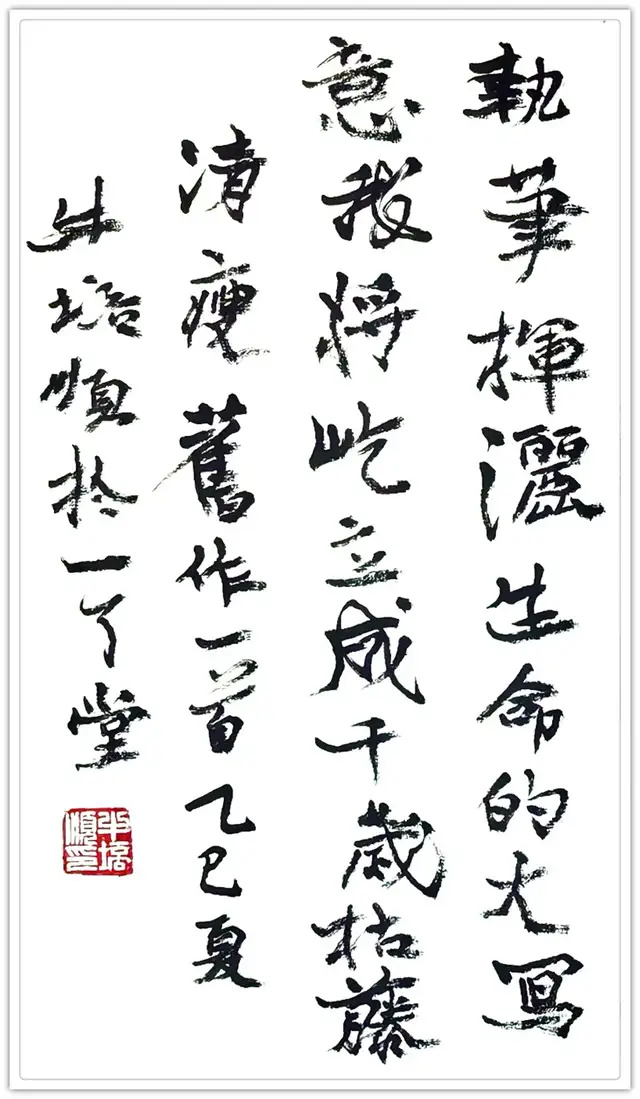 執筆揮灑生命的大寫
意我將屹立成千歲枯藤
清瘦舊作一首乙巳夏
牛培順於一了堂
牛培順印